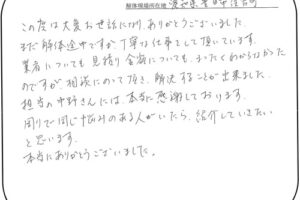 解体現場所在地 愛知県
この度は大変お世話になりありがとうございました。
まだ解体途中ですが、丁寧な仕事をして頂いています。
業者についても見積り金額についても、まったくわからなかった
のですが、相談にのって頂き、解決することが出来ました。
担当の中野さんには、本当に感謝しております。
周りで同じ悩みのある人がいたら、紹介していきたい
と思います。
本当にありがとうございました。